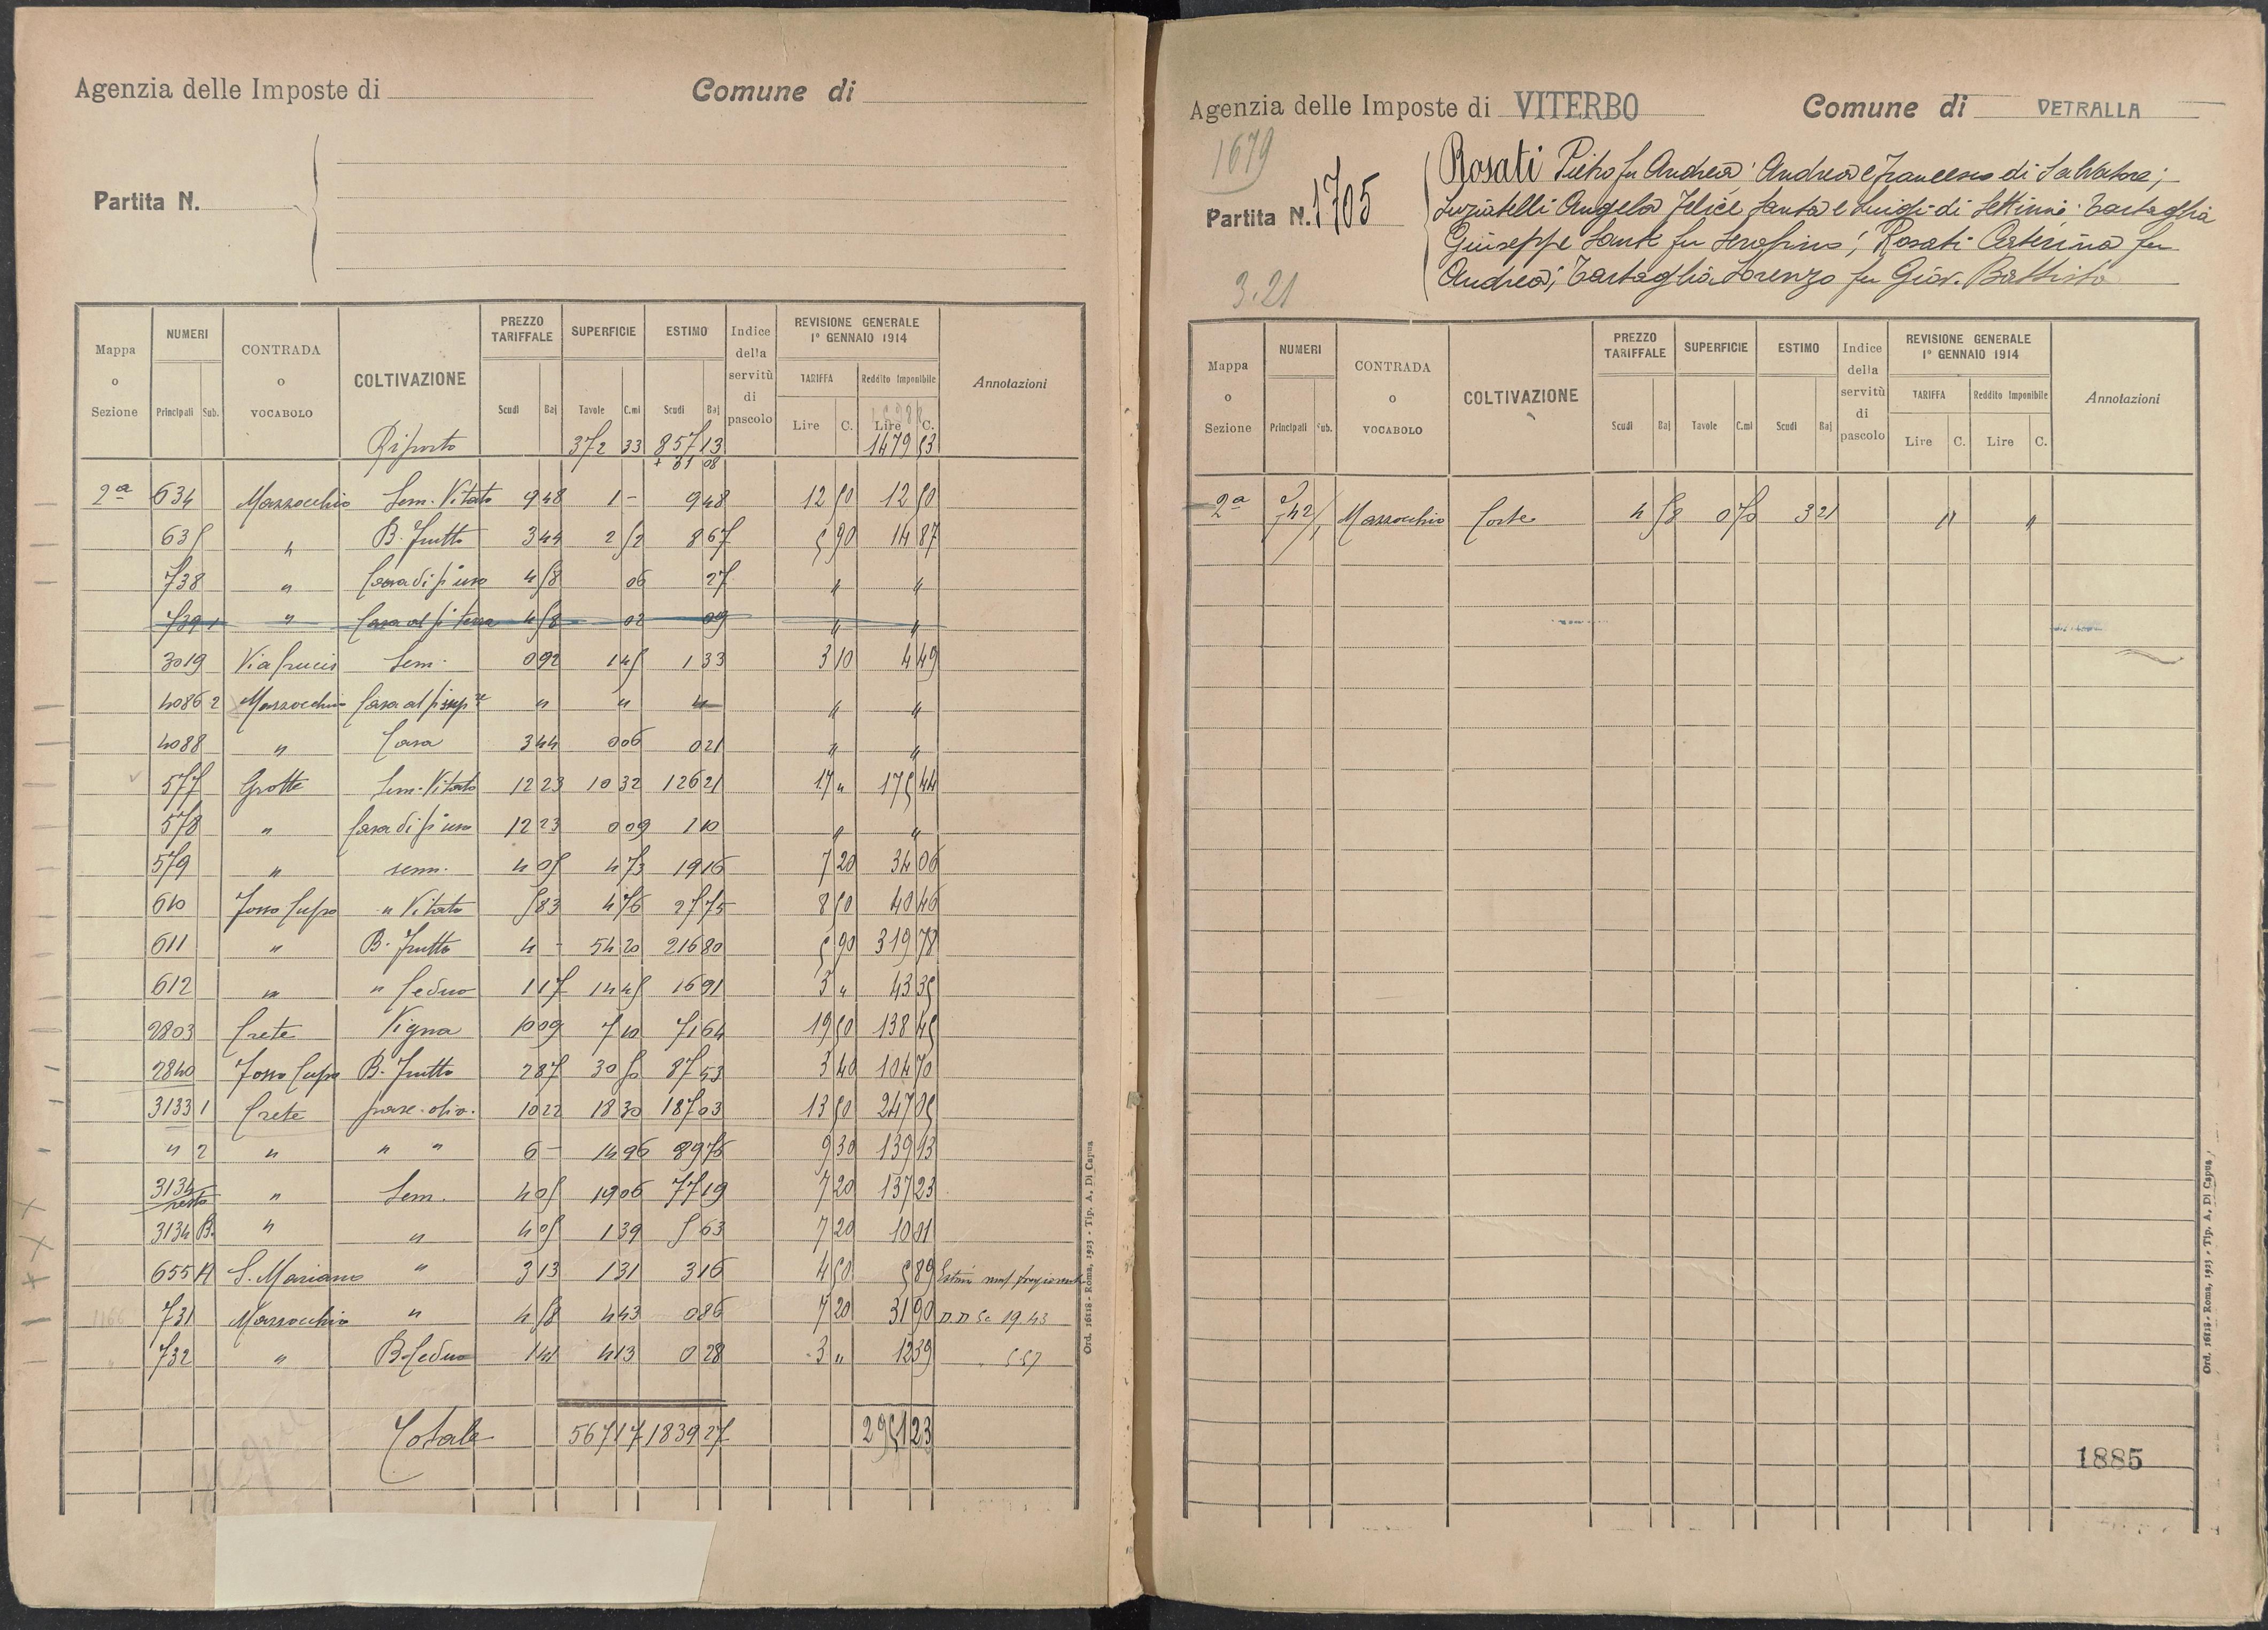 Agenzia delle Imposte di
Comune di
Partita N.
Mappa o Sezione
NUMERI
Principali Sub.
CONTRADA o VOCABOLO
COLTIVAZIONE
PREZZO TARIFFALE
Scudi Baj
SUPERFICIE
Tavole C.mi
ESTIMO
Scudi Baj
Indice della servitù di pascolo
REVISIONE GENERALE
1° GENNAIO 1914
TARIFFA
Lire C.
Reddito Imponibile
Lire C.
Annotazioni
Riporto 372 33 857 13 1479 53
+ 31 08
2ª 634 Mazzocchio Sem. Vitato 9 48 1 - 9 48 12 50 12 50
635 " B. Frutto 3 44 2 52 8 67 5 90 14 87
738 " Casa di p. uso 4 58 06 27 " "
739 1 " Casa al p. terra 4 58 02 09 " "
3019 Via Crucis Sem. 0 92 1 45 1 33 3 10 4 49
4086 2 Mazzocchio Casa al p. sup.re " " " " "
4088 " Casa 3 44 0 06 0 21 " "
577 Grotte Sem. Vitato 12 23 10 32 126 21 17 " 175 44
578 " Casa di p. uso 12 23 0 09 1 10 " "
579 " sem. 4 05 4 73 19 16 7 20 34 06
610 Fosso Cupo " Vitato 5 83 4 76 27 75 8 50 40 46
611 " B. Frutto 4 - 54 20 216 80 5 90 319 78
612 " " Ceduo 1 17 14 45 16 91 3 " 43 35
2803 Crete Vigna 10 09 7 10 71 64 19 50 138 45
2840 Fosso Cupo B. Frutto 2 87 30 50 87 53 3 40 104 70
3133 1 Crete pasc. oliv. 10 22 18 30 187 03 13 50 247 05
" 2 " " " 6 - 14 96 89 76 9 30 139 13
3134 resto " Sem. 4 05 19 06 77 19 7 20 137 23
3134 B. " " 4 05 1 39 5 63 7 20 10 01
655 A S. Mariano " 3 13 1 31 3 16 4 50 5 89 Estimi
731 Mazzocchio " 4 58 4 43 0 86 7 20 31 90 19.43
732 " B. Ceduo 1 41 4 13 0 28 3 " 12 39 5.57
Totale 567 17 1839 27 2951 23
Ord. 16118 - Roma, 1923 - Tip. A. Di Capua
Agenzia delle Imposte di VITERBO
Comune di VETRALLA
1679
Partita N. 1705
3.21
Rosati Pietro fu Andrea; Andrea e Francesco di Salvatore;
Luziatelli Angela Felice Santa e Luigi di Settimio; Tartaglia
Giuseppe Sante fu Serafino; Rosati Caterina fu
Andrea; Tartaglia Lorenzo fu Giov. Battista
Mappa o Sezione
NUMERI
Principali Sub.
CONTRADA o VOCABOLO
COLTIVAZIONE
PREZZO TARIFFALE
Scudi Baj
SUPERFICIE
Tavole C.mi
ESTIMO
Scudi Baj
Indice della servitù di pascolo
REVISIONE GENERALE
1° GENNAIO 1914
TARIFFA
Lire C.
Reddito Imponibile
Lire C.
Annotazioni
2ª 742/1 Mazzocchio Corte 4 58 0 70 3 21 " "
1885
Ord. 16118 - Roma, 1923 - Tip. A. Di Capua